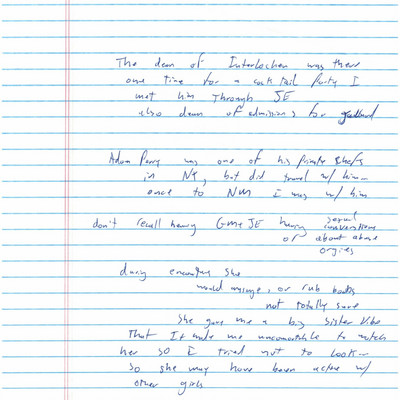 The dean of Interlochen was there
one time for a cocktail party I
met him through JE
also dean of admissions for
Adam Perry was one of his private chefs
in NY, but did travel w/ him—
once to NM I was w/ him
don't recall hearing GM + JE having sexual conversations
or about abuse
orgies
during encounters she
would massage, or rub boobs
not totally sure
She gave me a big sister vibe
That it made me uncomfortable to watch
her so I tried not to look—
so she may have been active w/
other girls